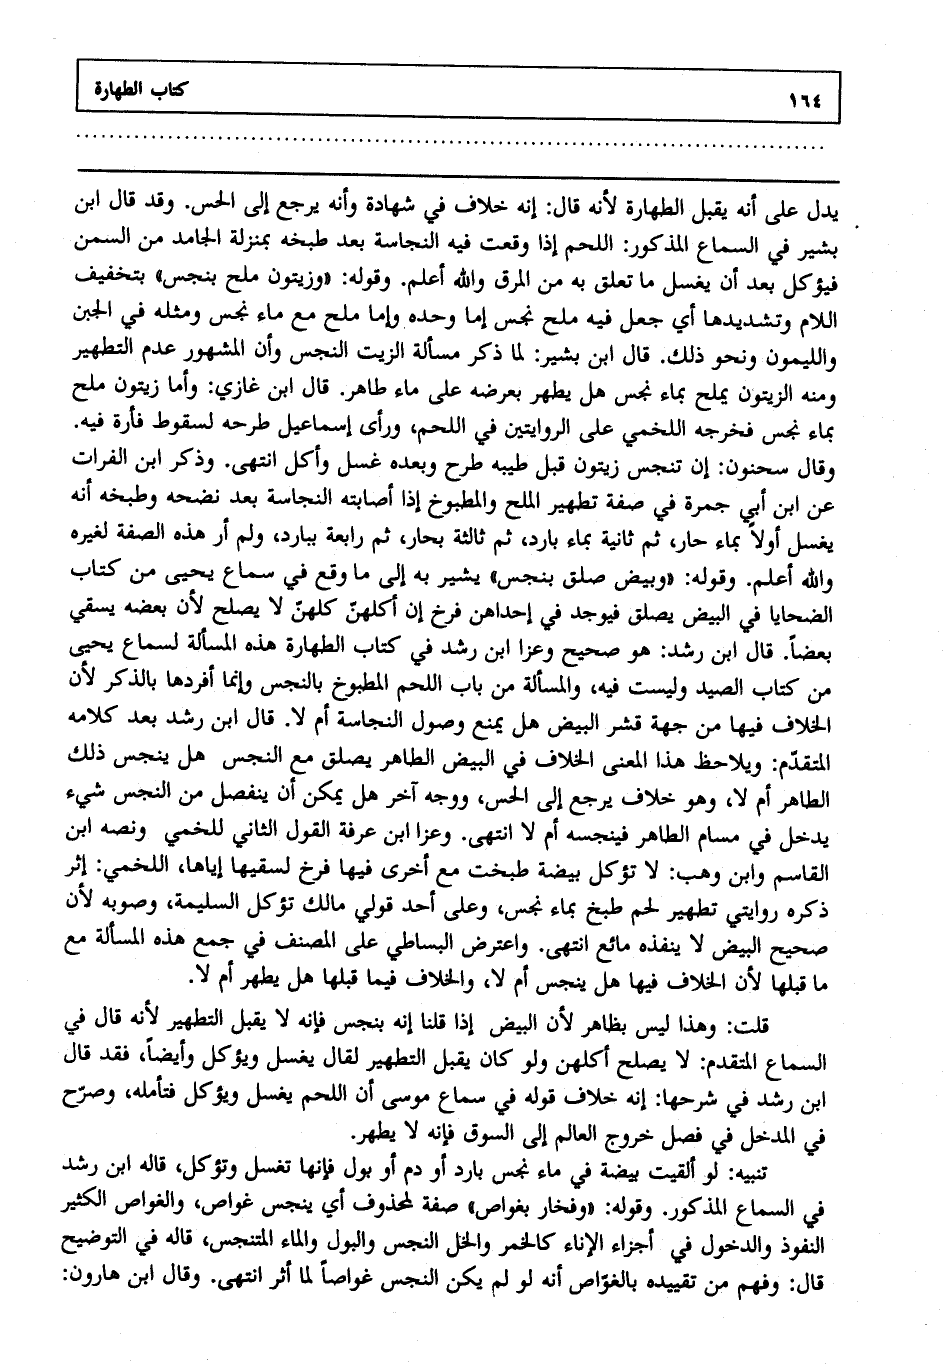 ١٦٤ كتاب الطهارة
يدل على أنه يقبل الطهارة لأنه قال: إنه خلاف في شهادة وأنه يرجع إلى الحس. وقد قال ابن
بشير في السماع المذكور: اللحم إذا وقعت فيه النجاسة بعد طبخه بمنزلة الجامد من السمن
فيؤكل بعد أن يغسل ما تعلق به من المرق والله أعلم. وقوله: «وزيتون ملح بنجس» بتخفيف
اللام وتشديدها أي جعل فيه ملح نجس إما وحده وإما ملح مع ماء نجس ومثله في الجبن
والليمون ونحو ذلك. قال ابن بشير: لما ذكر مسألة الزيت النجس وأن المشهور عدم التطهير
ومنه الزيتون يملح بماء نجس هل يطهر بعرضه على ماء طاهر. قال ابن غازي: وأما زيتون ملح
بماء نجس فخرجه اللخمي على الروايتين في اللحم، ورأى إسماعيل طرحه لسقوط فأرة فيه.
وقال سحنون: إن تنجس زيتون قبل طيبه طرح وبعده غسل وأكل انتهى. وذكر ابن الفرات
عن ابن أبي جمرة في صفة تطهير الملح والمطبوخ إذا أصابته النجاسة بعد نضحه وطبخه أنه
يغسل أولاً بماء حار، ثم ثانية بماء بارد، ثم ثالثة بحار، ثم رابعة ببارد، ولم أر هذه الصفة لغيره
والله أعلم. وقوله: «وبيض صلق بنجس» يشير به إلى ما وقع في سماع يحيى من كتاب
الضحايا في البيض يصلق فيوجد في إحداهن فرخ إن أكلهنّ كلهنّ لا يصلح لأن بعضه يسقي
بعضاً. قال ابن رشد: هو صحيح وعزا ابن رشد في كتاب الطهارة هذه المسألة لسماع يحيى
من كتاب الصيد وليست فيه، والمسألة من باب اللحم المطبوخ بالنجس وإنما أفردها بالذكر لأن
الخلاف فيها من جهة قشر البيض هل يمنع وصول النجاسة أم لا. قال ابن رشد بعد كلامه
المتقدّم: ويلاحظ هذا المعنى الخلاف في البيض الطاهر يصلق مع النجس هل ينجس ذلك
الطاهر أم لا، وهو خلاف يرجع إلى الحس، ووجه آخر هل يمكن أن ينفصل من النجس شيء
يدخل في مسام الطاهر فينجسه أم لا انتهى. وعزا ابن عرفة القول الثاني للخمي ونصه ابن
القاسم وابن وهب: لا تؤكل بيضة طبخت مع أخرى فيها فرخ لسقيها إياها، اللخمي: إثر
ذكره روايتي تطهير لحم طبخ بماء نجس، وعلى أحد قولي مالك تؤكل السليمة، وصوبه لأن
صحيح البيض لا ينفذه مائع انتهى. واعترض البساطي على المصنف في جمع هذه المسألة مع
ما قبلها لأن الخلاف فيها هل ينجس أم لا، والخلاف فيما قبلها هل يطهر أم لا.
قلت: وهذا ليس بظاهر لأن البيض إذا قلنا إنه بنجس فإنه لا يقبل التطهير لأنه قال في
السماع المتقدم: لا يصلح أكلهن ولو كان يقبل التطهير لقال يغسل ويؤكل وأيضاً، فقد قال
ابن رشد في شرحها: إنه خلاف قوله في سماع موسى أن اللحم يغسل ويؤكل فتأمله، وصرّح
في المدخل في فصل خروج العالم إلى السوق فإنه لا يطهر.
تنبيه: لو ألقيت بيضة في ماء نجس بارد أو دم أو بول فإنها تغسل وتؤكل، قاله ابن رشد
في السماع المذكور. وقوله: «وفخار بغواص» صفة لمحذوف أي ينجس غواص، والغواص الكثير
النفوذ والدخول في أجزاء الإناء كالخمر والخل النجس والبول والماء المتنجس، قاله في التوضيح
قال: وفهم من تقييده بالغوّاص أنه لو لم يكن النجس غواصاً لما أثر انتهى. وقال ابن هارون: